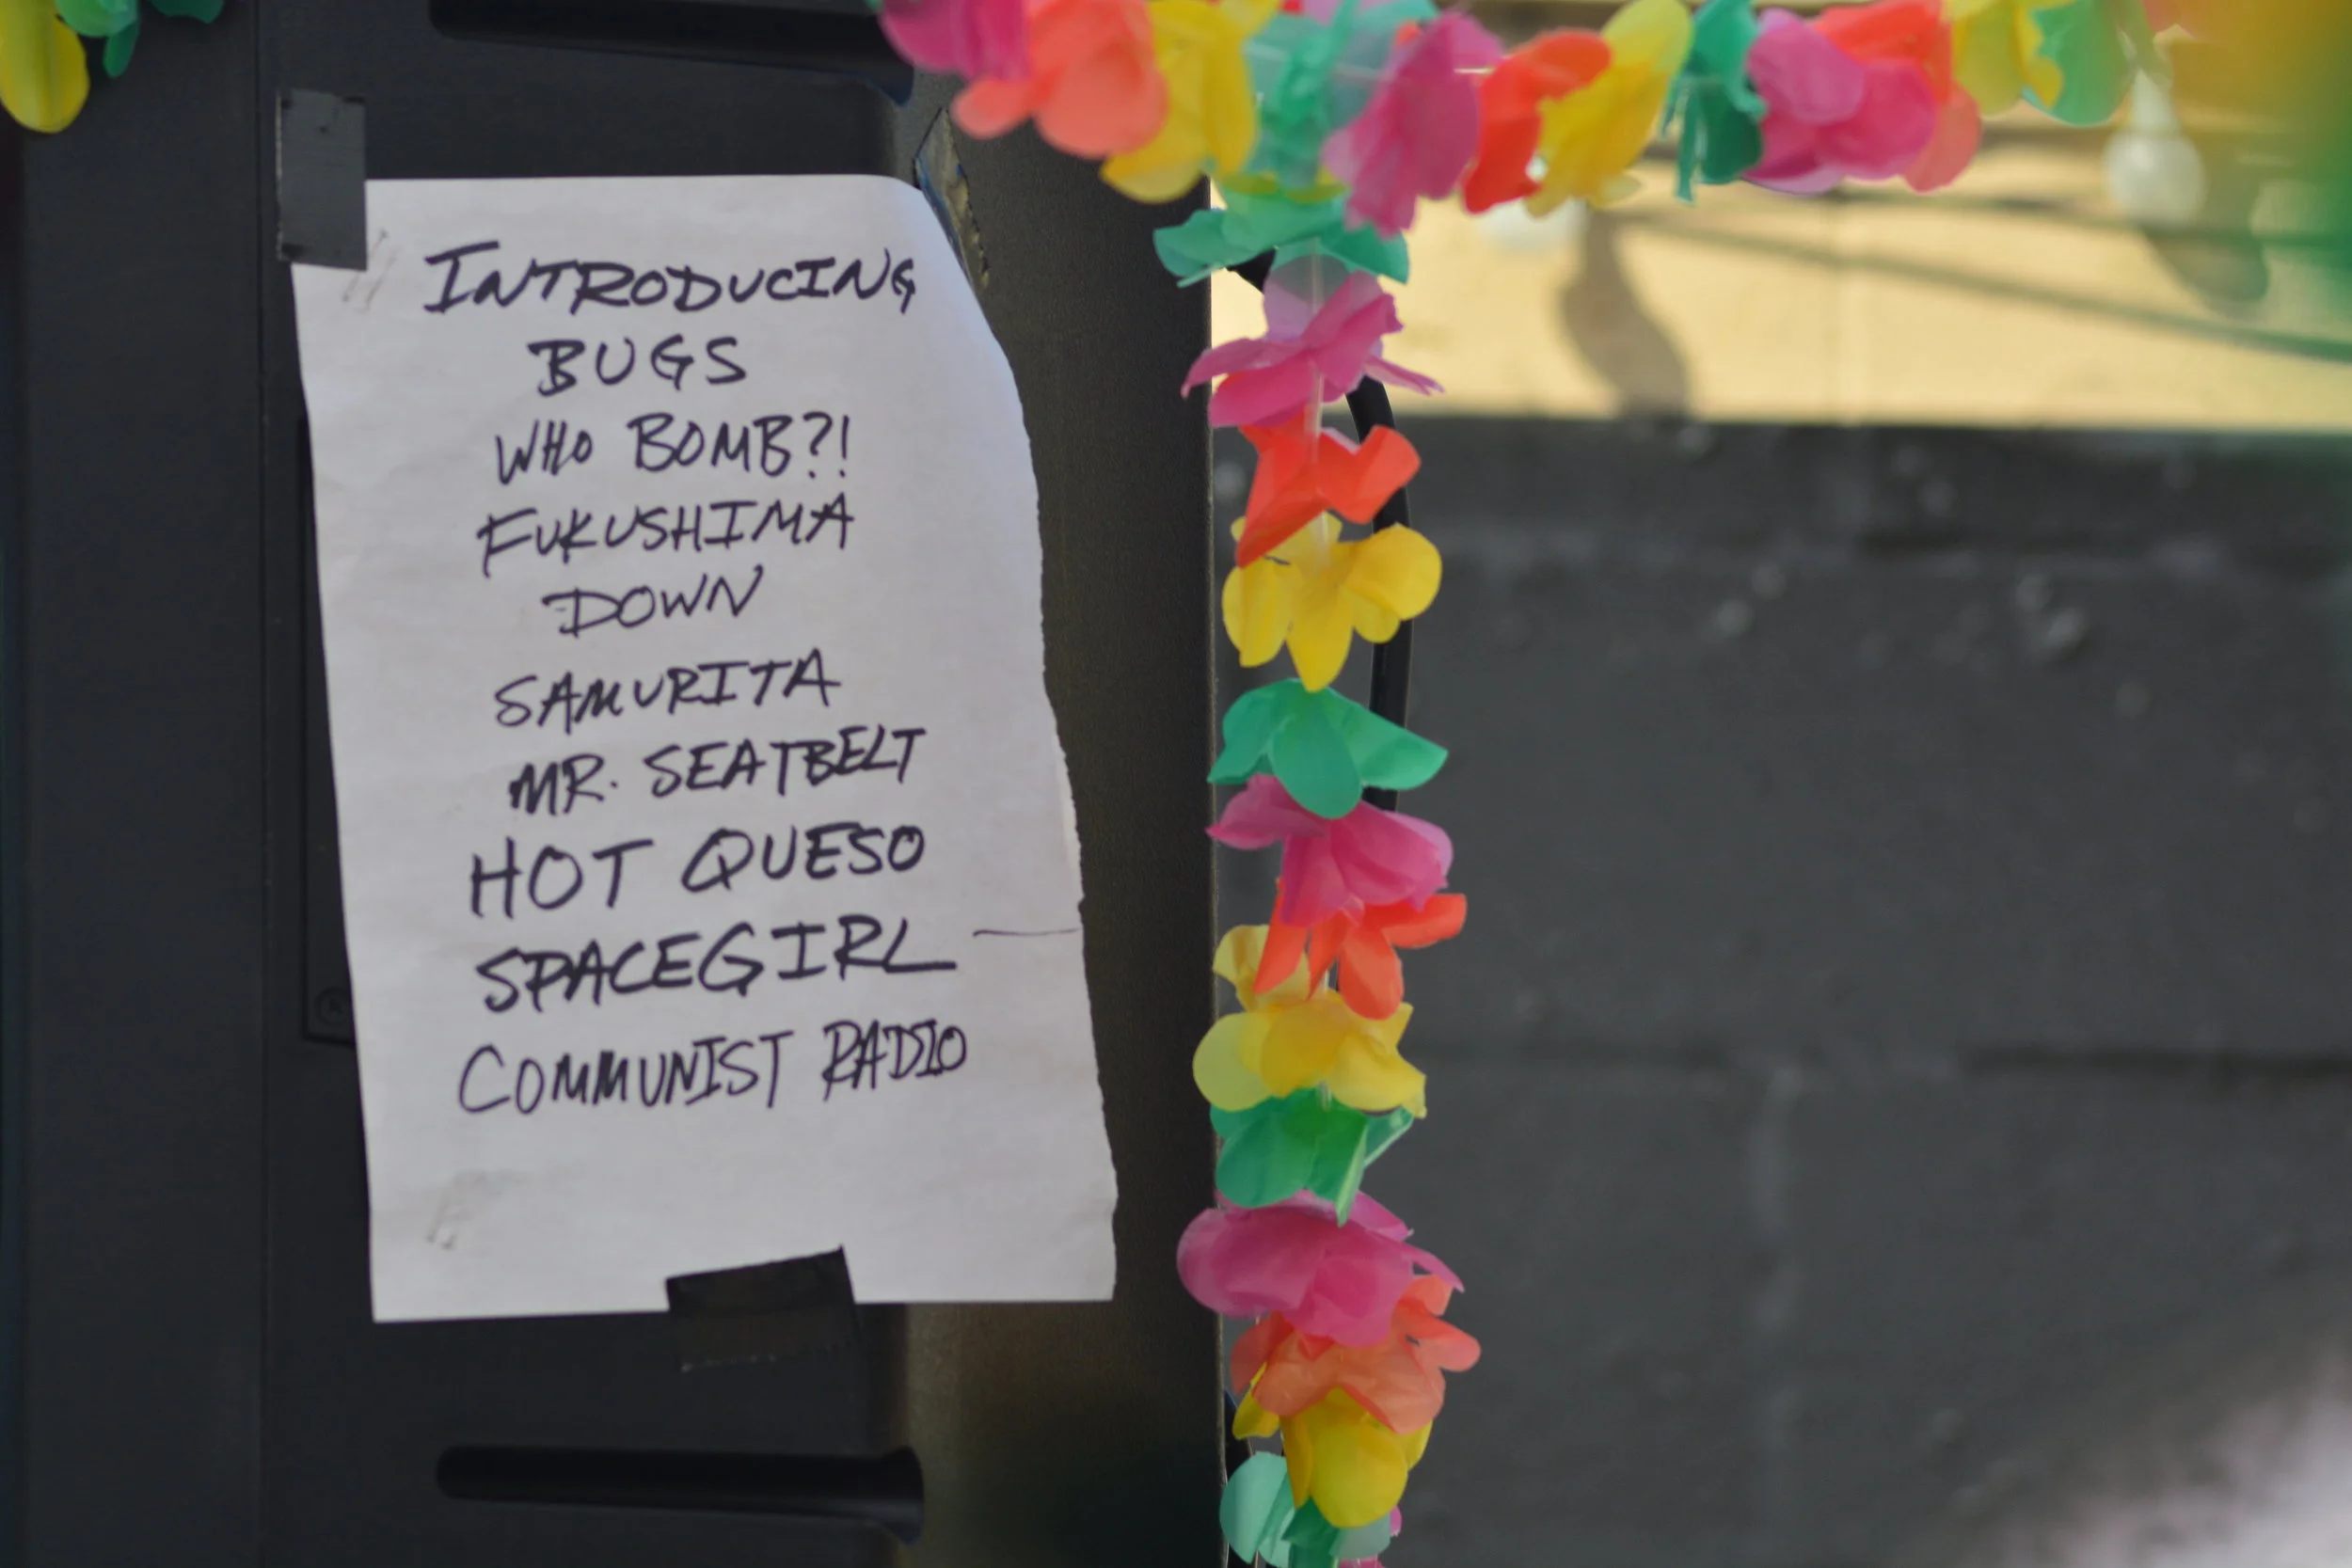 INTRODUCING
BUGS
WHO BOMB?!
FUKUSHIMA
DOWN
SAMURITA
MR. SEATBELT
HOT QUESO
SPACEGIRL
COMMUNIST RADIO